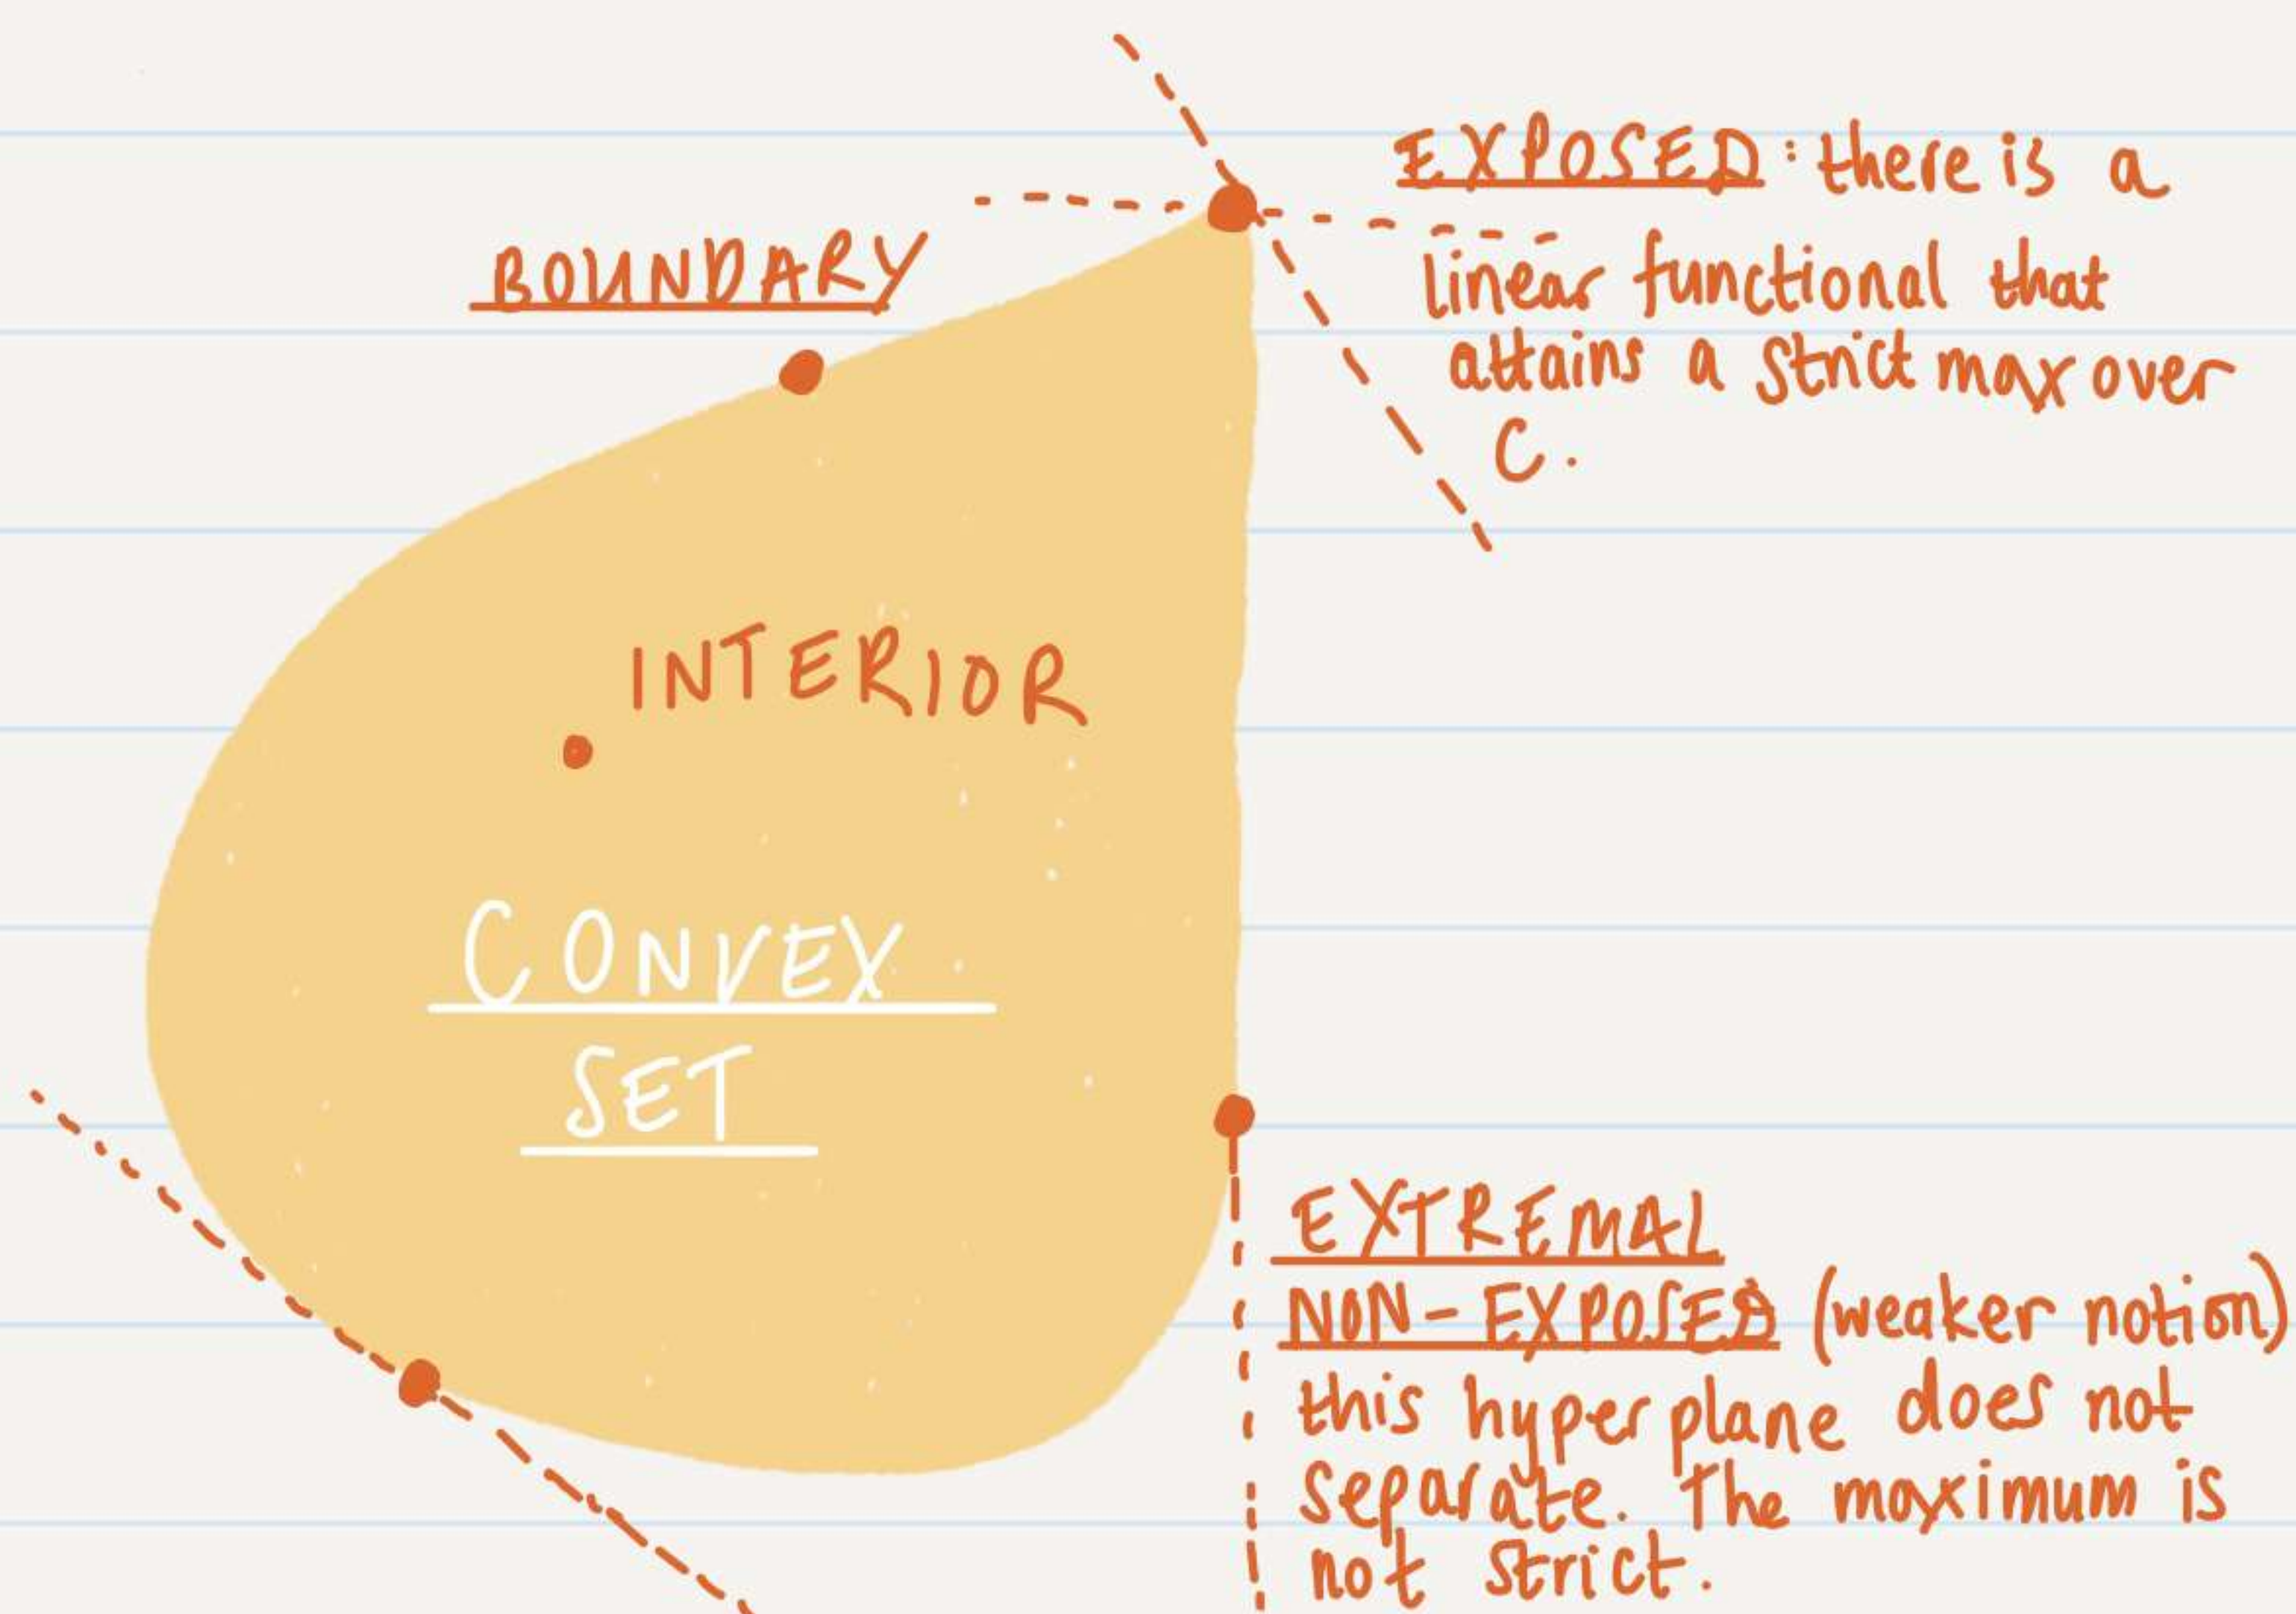 EXPOSED: there is a
linear functional that
attains a strict max over
C.
BOUNDARY
INTERIOR
CONVEX
SET
EXTREMAL
NON-EXPOSED (weaker notion)
this hyperplane does not
separate. The maximum is
not strict.